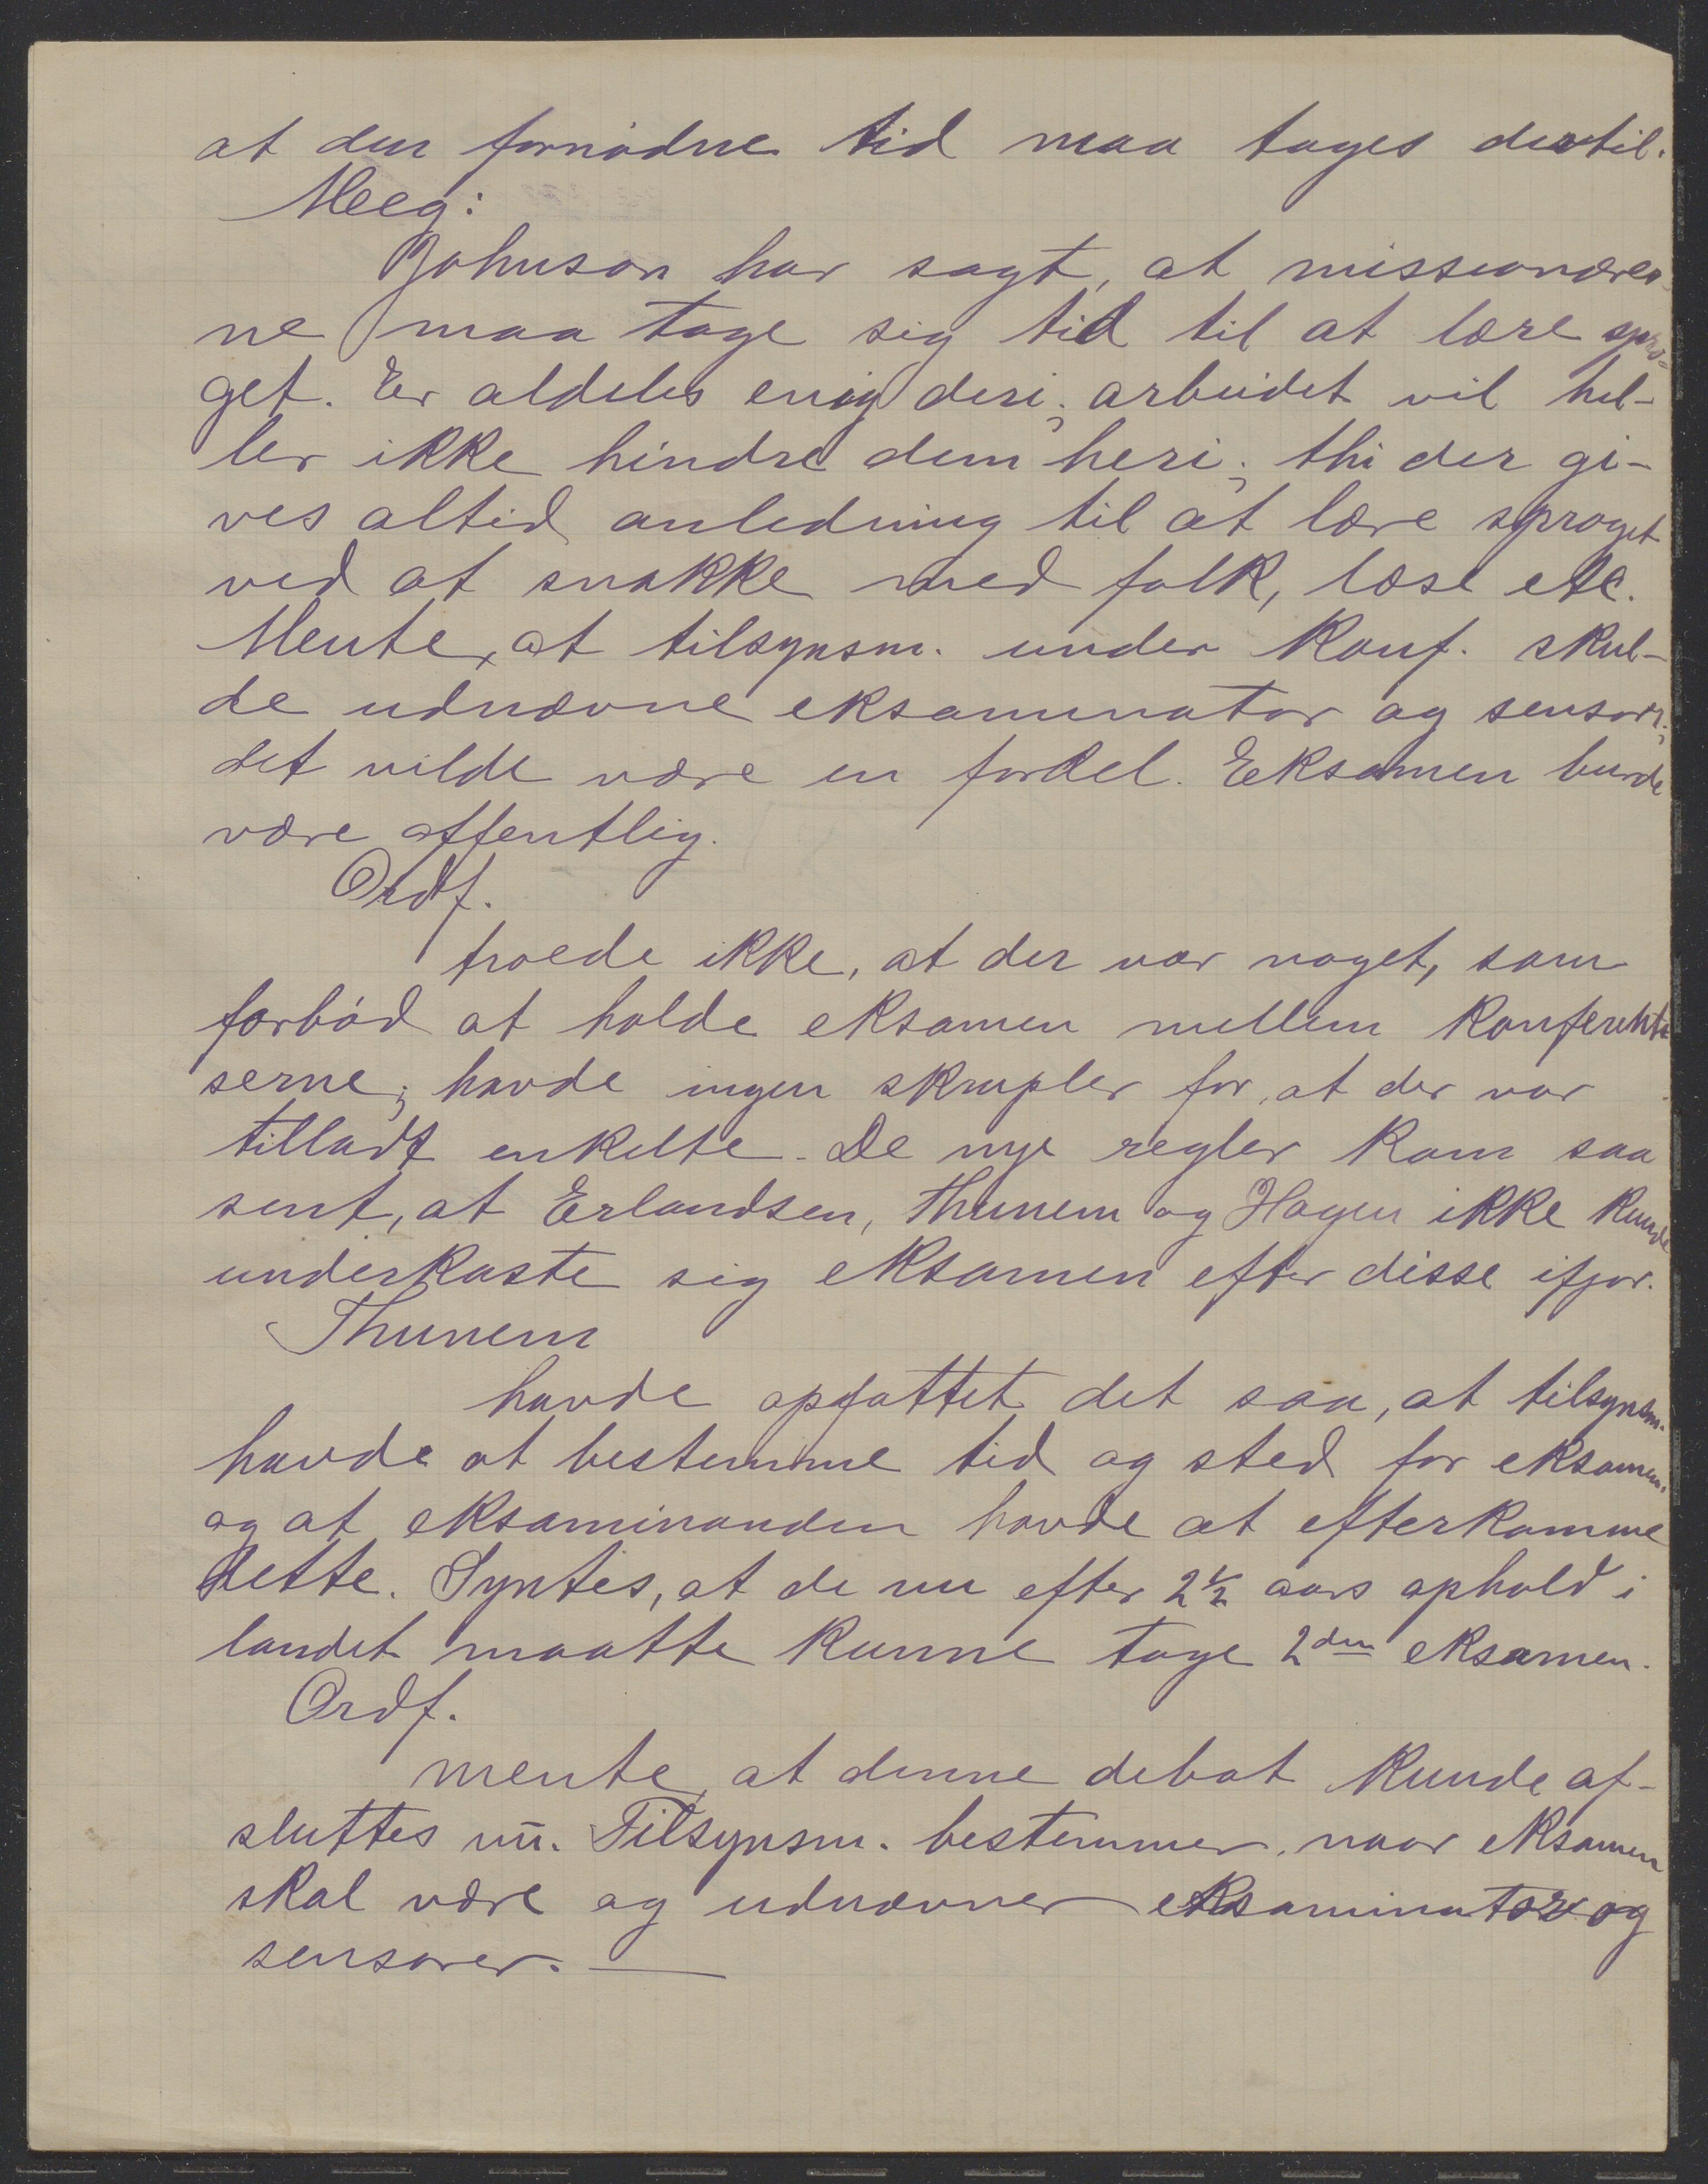 at den fornødne tid maa tages dertil.
Meeg:
Johnson har sagt, at missionærer-
ne maa tage sig tid til at lære spro-
get. Er aldeles enig deri; arbeidet vil hel-
ler ikke hindre dem heri; thi der gi-
ves altid anledning til at lære sproget
ved at snakke med folk, læse etc.
Mente, at tilsynsm. under konf. skul-
de udnævne eksaminator og sensorer;
det vilde være en fordel. Eksamen burde
være offentlig.
Ordf.
troede ikke, at der var noget, som
forbød at holde eksamen mellem konferent-
serne; havde ingen skrupler for, at der var
tilladt enkelte. De nye regler kom saa
sent, at Erlandsen, Thunem og Hagen ikke kunde
underkaste sig eksamen efter disse ifjor.
Thunem
havde opfattet det saa, at tilsynsm.
havde at bestemme tid og sted for eksamen,
og at eksaminanden havde at efterkomme
dette. Syntes, at de nu efter 2½ aars ophold i
landet maatte kunne tage 2den eksamen.
Ordf.
mente, at denne debat kunde af-
sluttes nu. Tilsynsm. bestemmer, naar eksamen
skal være og udnævner eksaminator og
sensorer. —